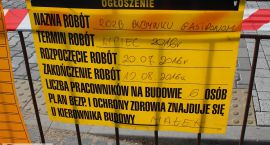 OGŁOSZENIE
NAZWA ROBÓT ROZB. BUDYNKU GASTRONOM.
TERMIN ROBÓT LIPIEC 2016r
ROZPOCZĘCIE ROBÓT 20.07.2016r
ZAKOŃCZENIE ROBÓT 12.08.2016r.
LICZBA PRACOWNIKÓW NA BUDOWIE 6 OSÓB
PLAN BEZP. I OCHRONY ZDROWIA ZNAJDUJE SIĘ
U KIEROWNIKA BUDOWY